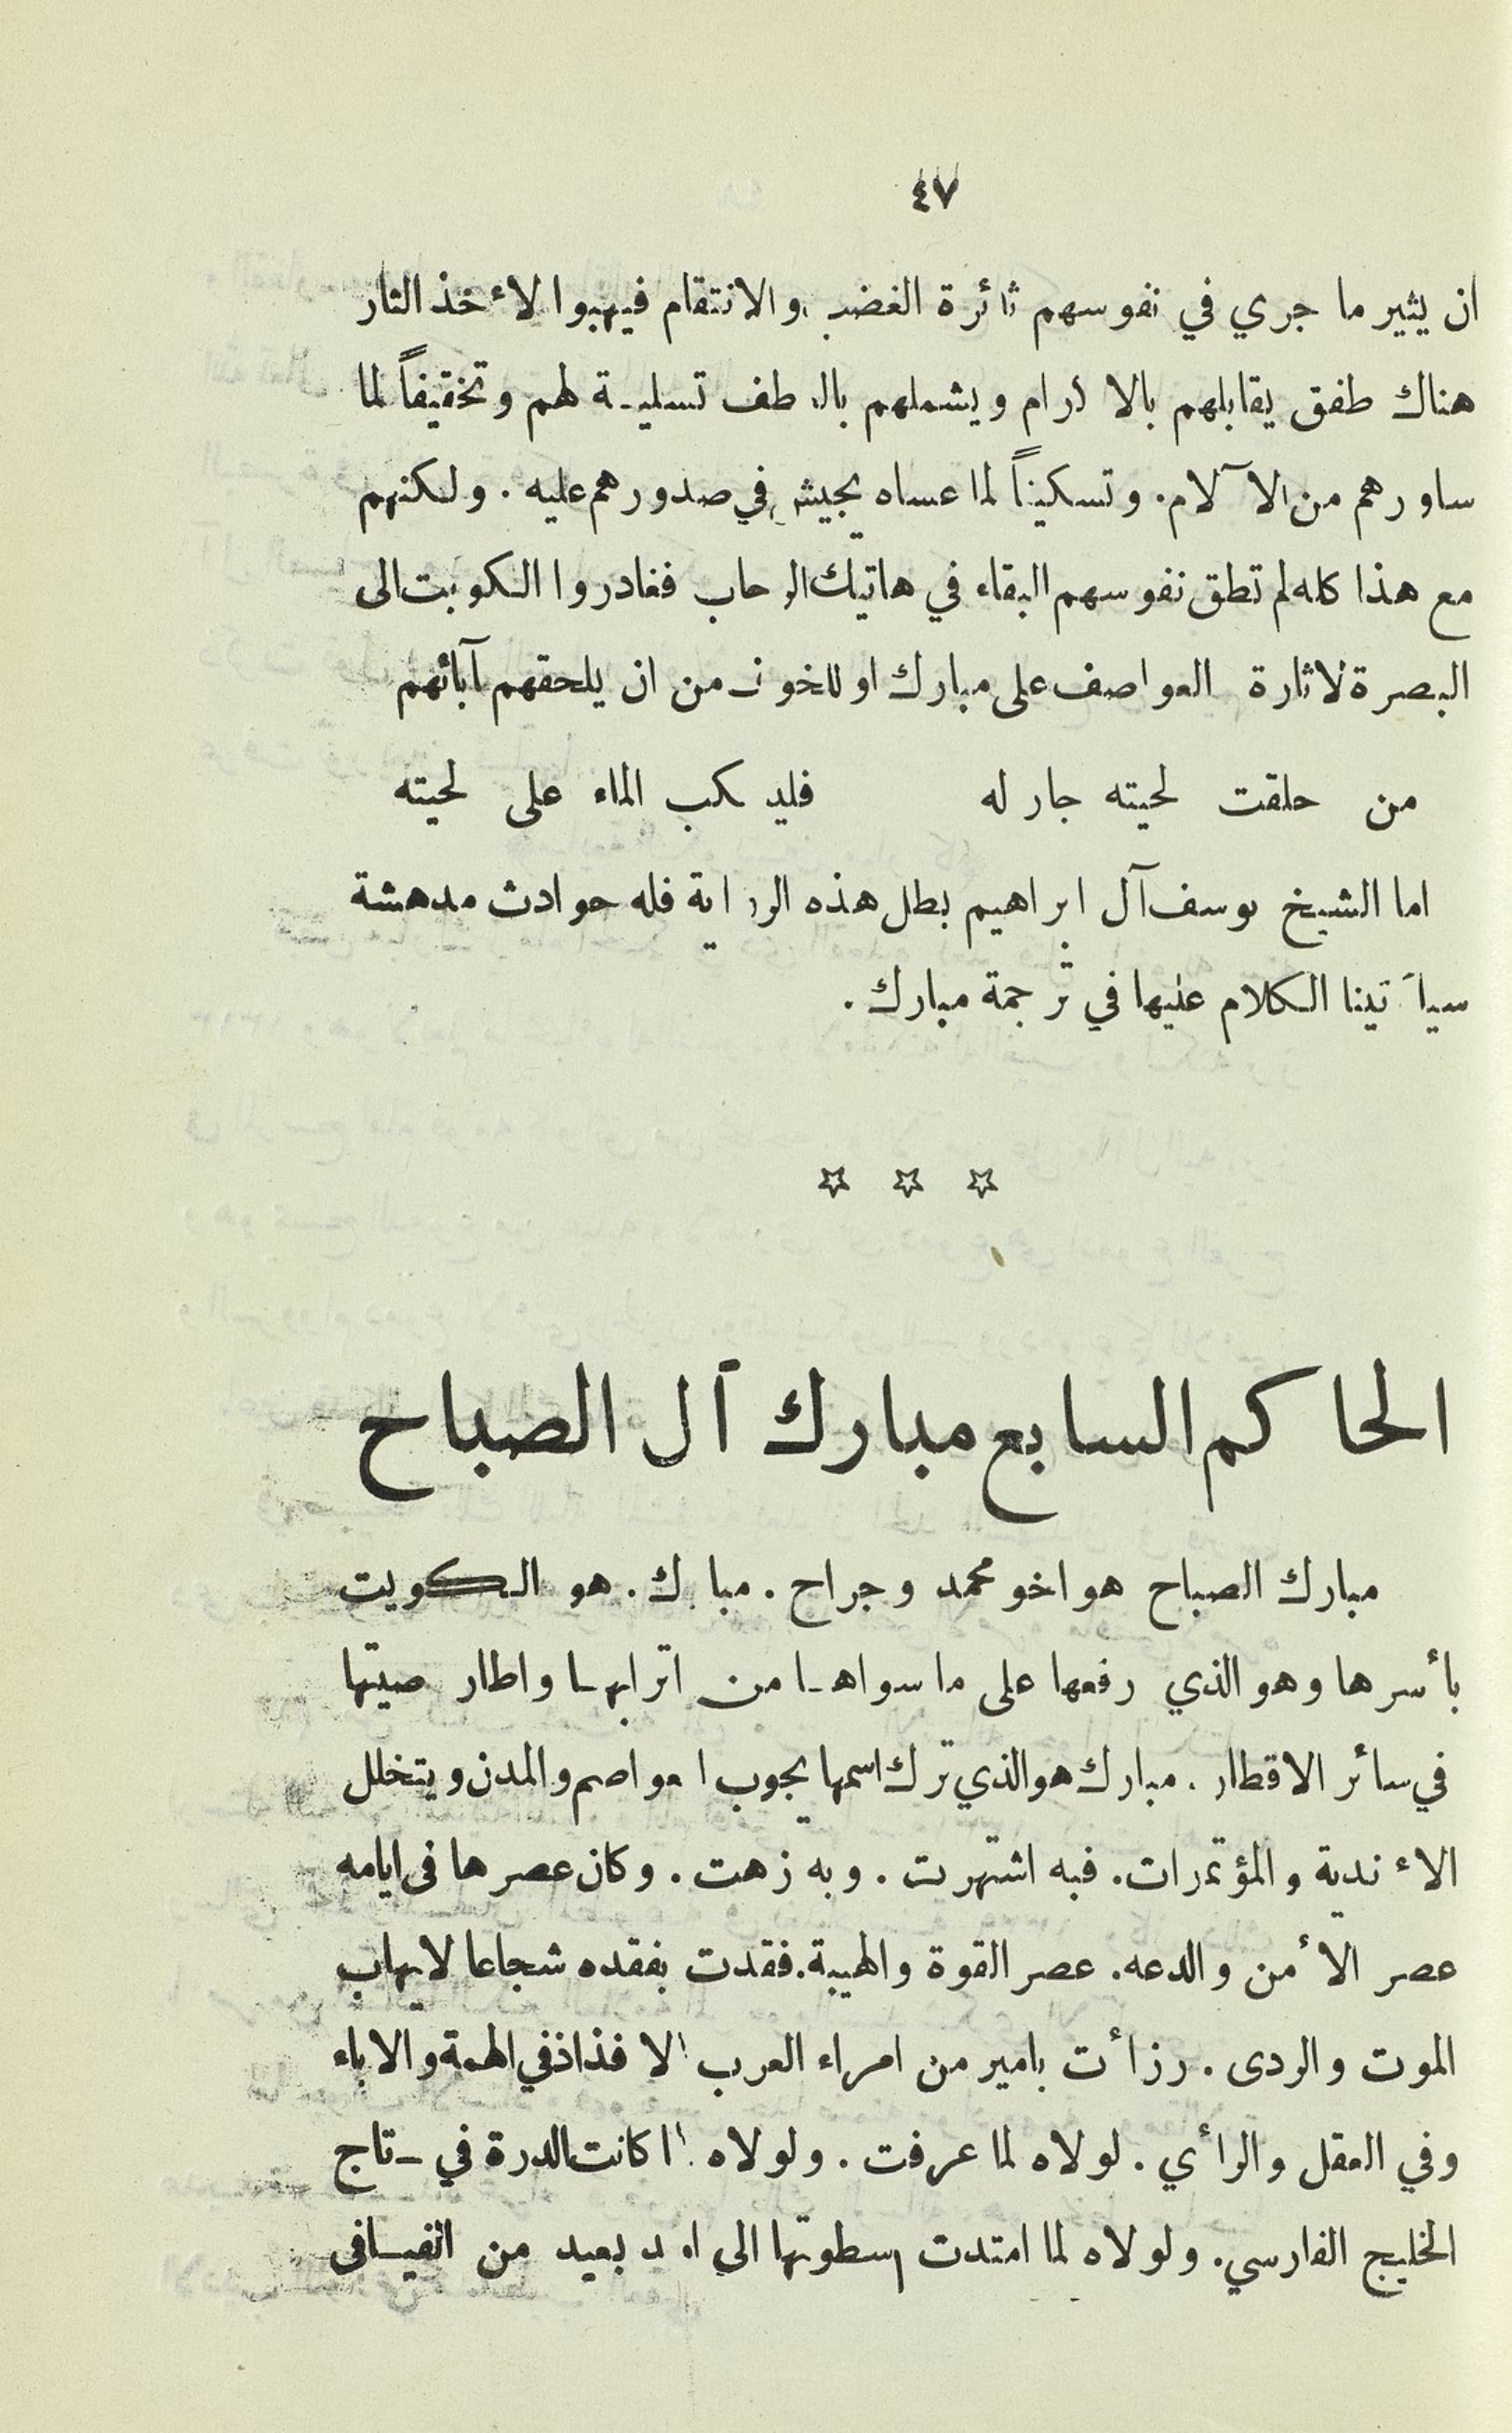 ٤٧
ان يثير ما جري في نفوسهم ثائرة الغضب والانتقام فيهبوا لاءخذ الثار
هناك طفق يقابلهم بالاكرام ويشملهم بالعطف تسلية لهم وتخفيفاً لما
ساورهم من الآلام. وتسكيناً لما عساه يجيش في صدورهم عليه. ولكنهم
مع هذا كله لم تطق نفوسهم البقاء في هاتيك الرحاب فغادروا الكويت الى
البصرة لاثارة العواصف على مبارك او للخوف من ان يلحقهم آبائهم
من حلقت لحيته جار له فليسكب الماء على لحيته
اما الشيخ يوسف آل ابراهيم بطل هذه الرواية فله حوادث مدهشة
سيأتينا الكلام عليها في ترجمة مبارك.
☆ ☆ ☆
الحاكم السابع مبارك آل الصباح
مبارك الصباح هو اخو محمد وجراح. مبارك. هو الكويت
بأسرها وهو الذي رفعها على ما سواها من اترابها واطار صيتها
في سائر الاقطار. مبارك هو الذي ترك اسمها يجوب العواصم والمدن ويتخلل
الاءندية والمؤتمرات. فبه اشتهرت. وبه زهت. وكان عصرها فى ايامه
عصر الأمن والدعه. عصر القوة والهيبة. فقدت بفقده شجاعا لا يهاب
الموت والردى. رزأت بامير من امراء العرب الافذاذ في الهمة والاباء
وفي العقل والرأي. لولاه لما عرفت. ولولاه لما كانت الدرة في تاج
الخليج الفارسي. ولولاه لما امتدت سطوتها الى امد بعيد من الفيافى